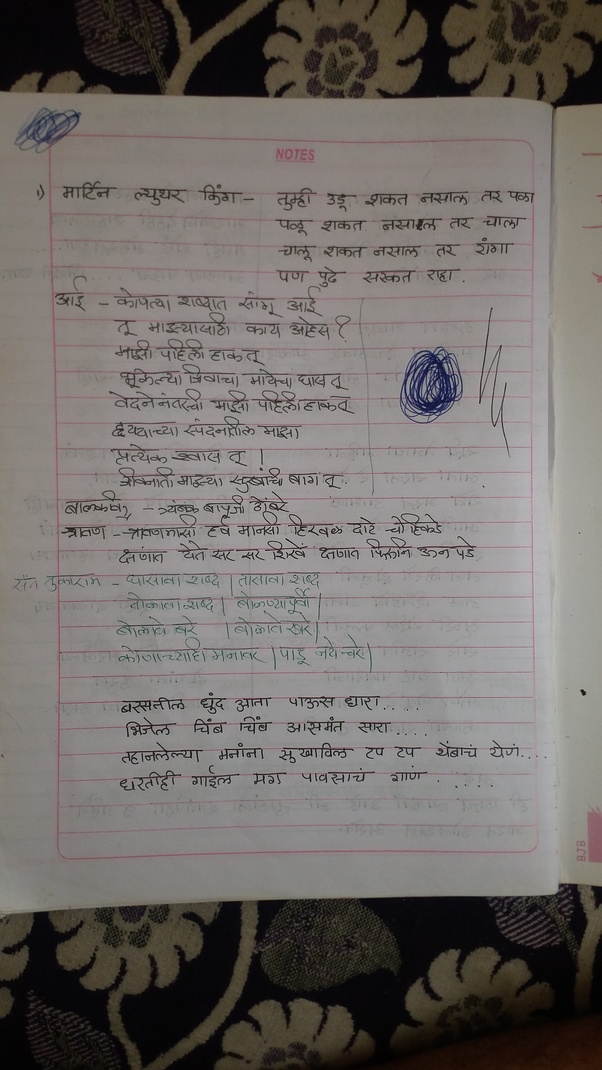 NOTES
१) मार्टिन ल्युथर किंग - तुम्ही उडू शकत नसाल तर पळा
पळू शकत नसाल तर चाला
चालू शकत नसाल तर रांगा
पण पुढे सरकत राहा.
आई - कोणत्या शब्दात सांगू आई
तू माझ्यासाठी काय आहेस?
माझी पहिली हाक तू
भूकेल्या जिवाचा मायेचा घास तू
वेदनेनंतरची माझी पहिली हाक तू
हृदयाच्या स्पंदनातील माझा
प्रत्येक श्वास तू !
जीवनाती माझ्या सुखाची बाग तू.
बालकवि - त्र्यंबक बापूजी ठोंबरे
श्रावण - श्रावणमासी हर्ष मानसी हिरवळ दाटे चोहिकडे
क्षणात येते सर सर शिरवे क्षणात फिरुनि ऊन पडे
संत तुकाराम - घासावा शब्द | तासावा शब्द
बोलावा शब्द | बोलण्यापूर्वी |
बोलावे बरे | बोलावे खरे |
कोणाच्याही मनावर | पाडू नये चरे |
बरसतील धुंद आता पाऊस धारा.....
भिजेल चिंब चिंब आसमंत सारा.....
तहानलेल्या मनांना सुखाविल टप टप थेंबाचं येणं....
धरतीही गाईल मग पावसाचं गाणं.....
BJB